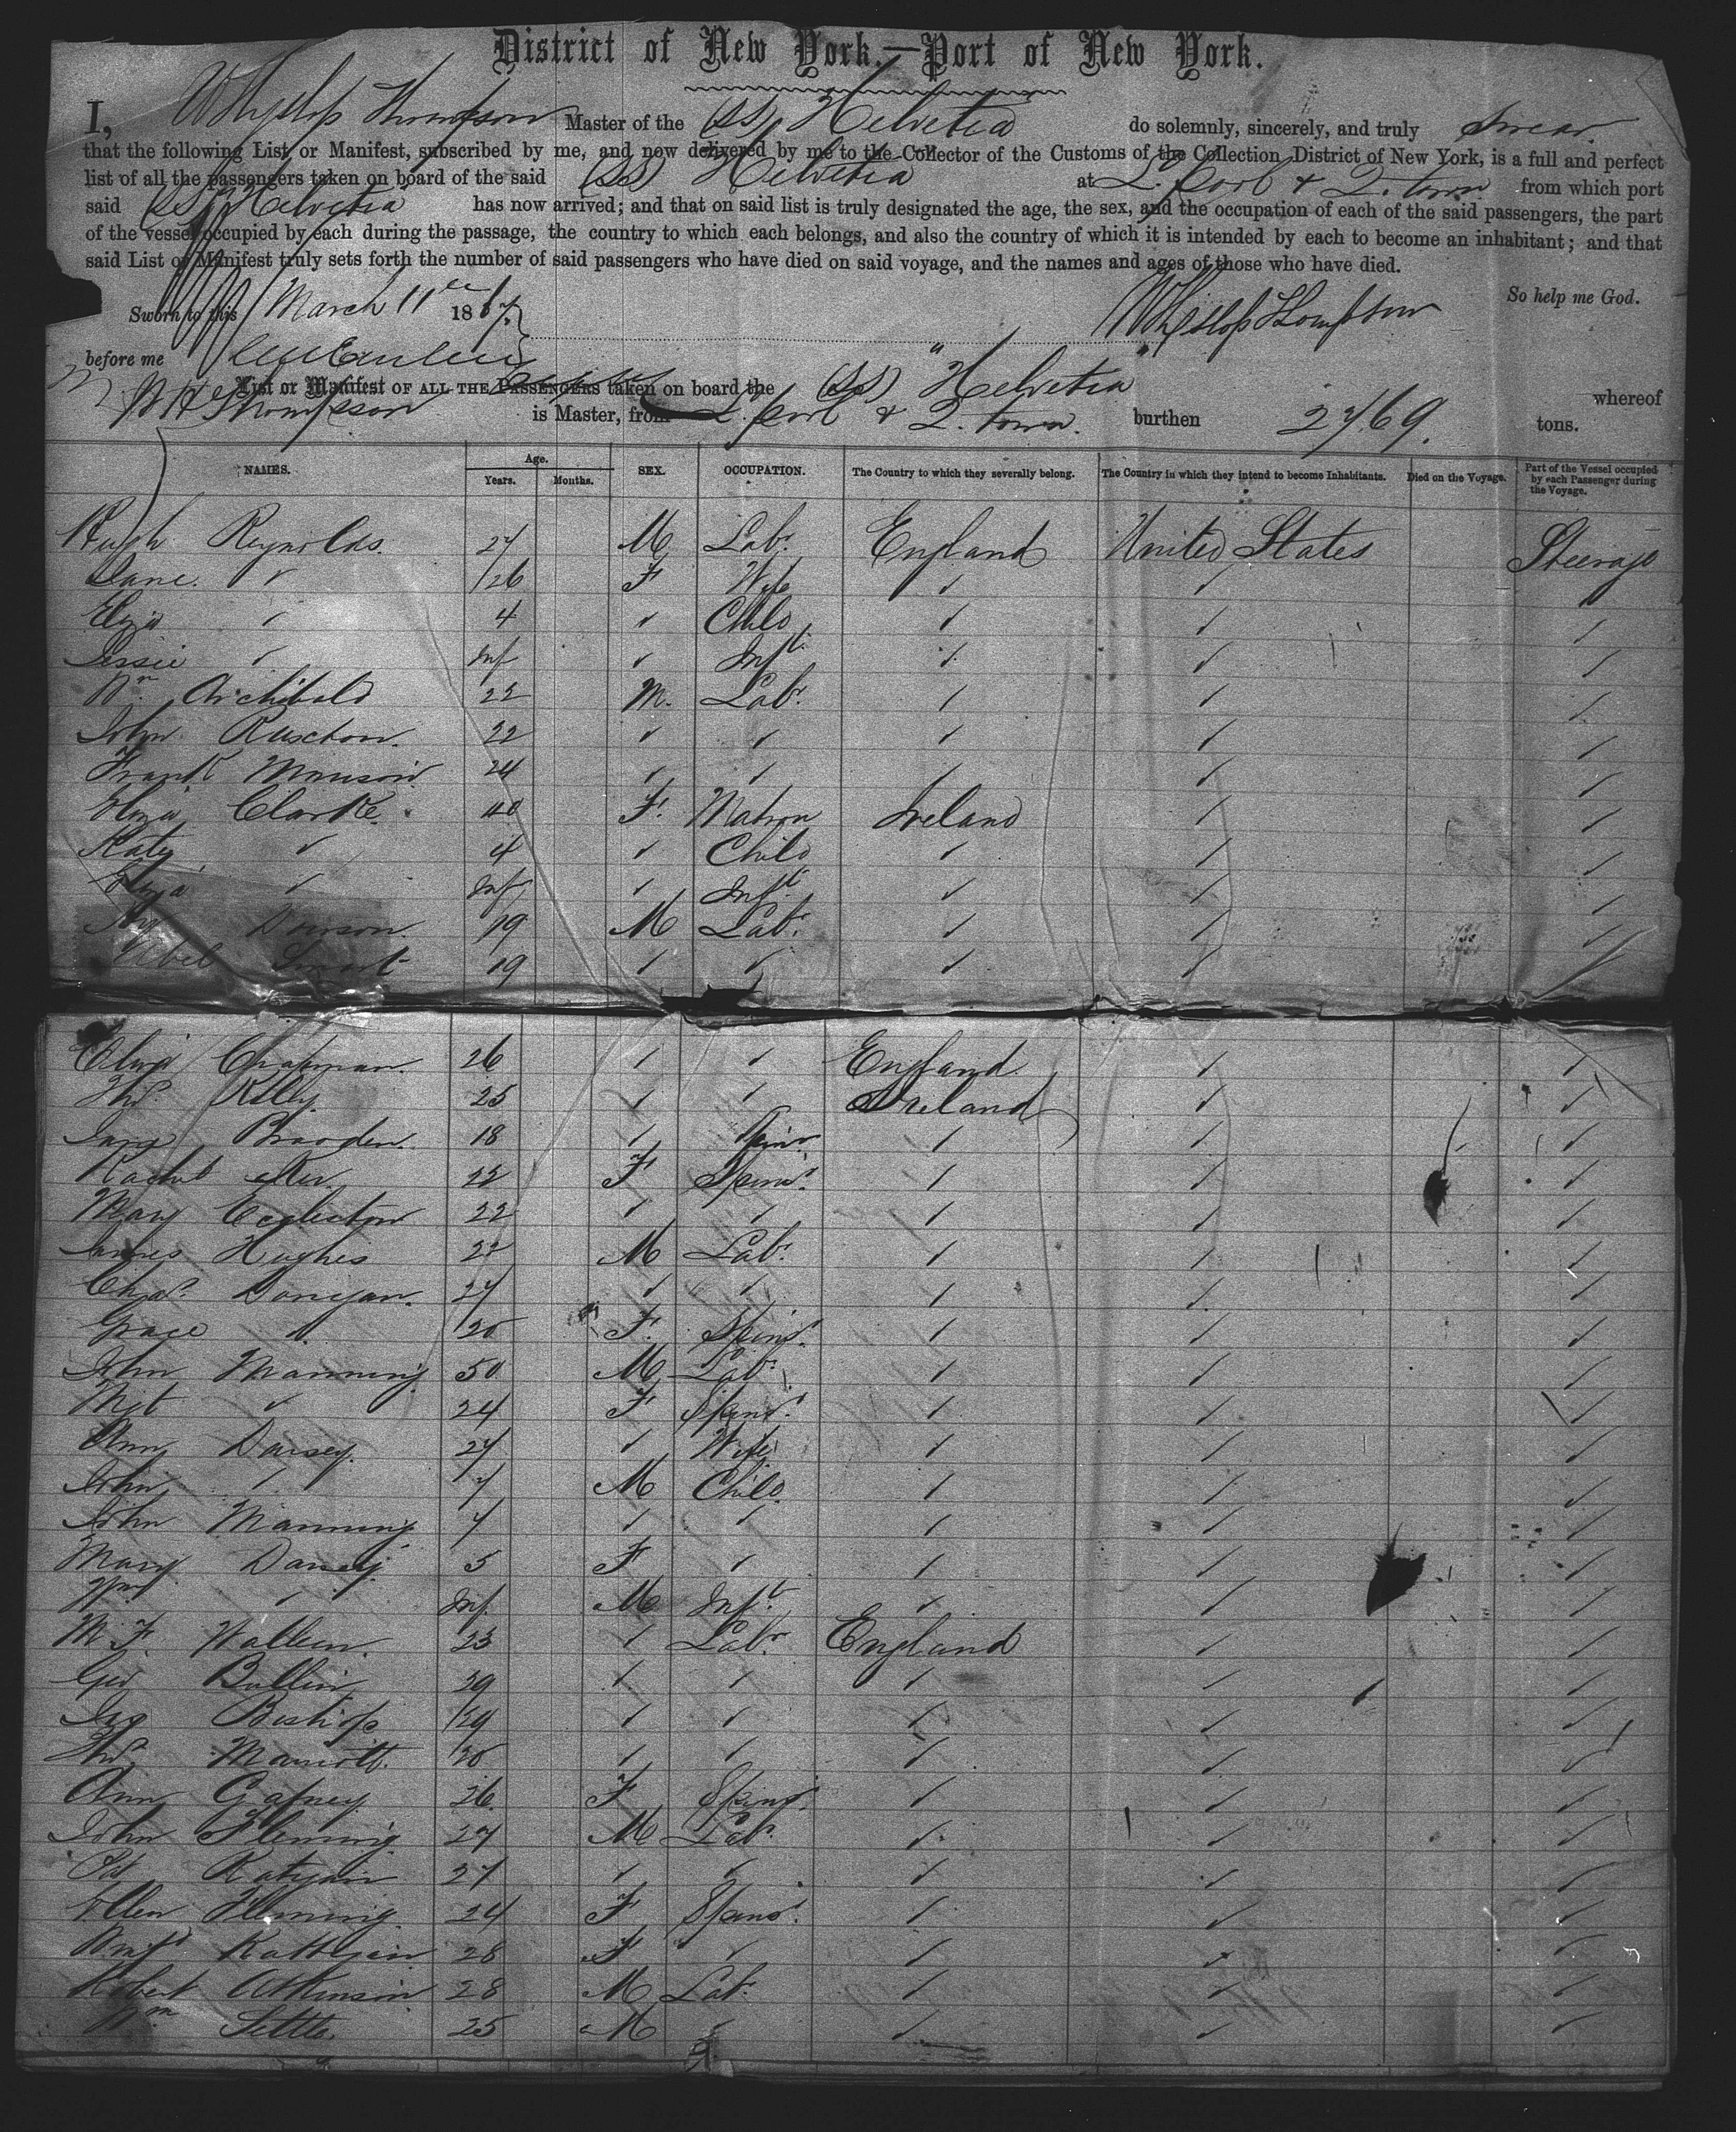 District of New York.—Port of New York.
I, W Hyslop Thompson Master of the (SS) Helvetia do solemnly, sincerely, and truly swear
that the following List or Manifest, subscribed by me, and now delivered by me to the Collector of the Customs of the Collection District of New York, is a full and perfect
list of all the passengers taken on board of the said (SS) Helvetia at L'pool & Q. town from which port
said (SS) Helvetia has now arrived; and that on said list is truly designated the age, the sex, and the occupation of each of the said passengers, the part
of the vessel occupied by each during the passage, the country to which each belongs, and also the country of which it is intended by each to become an inhabitant; and that
said List or Manifest truly sets forth the number of said passengers who have died on said voyage, and the names and ages of those who have died.
So help me God.
Sworn to this March 11 1867 W Hyslop Thompson
before me
List or Manifest OF ALL THE PASSENGERS taken on board the (SS) "Helvetia" whereof
W H Thompson is Master, from L'pool & Q. town. burthen 2769. tons.
NAMES. Age. Years. Months. SEX. OCCUPATION. The Country to which they severally belong. The Country in which they intend to become Inhabitants. Died on the Voyage. Part of the Vessel occupied by each Passenger during the Voyage.
Hugh Reynolds. 27 M Labr England United States Steerage
Jane. ✓ 26 F Wife ✓ ✓ ✓
Eliza ✓ 4 ✓ Child ✓ ✓ ✓
Jessie ✓ Inf ✓ Inft ✓ ✓ ✓
Wm Archibald 22 M. Labr ✓ ✓ ✓
John 22 ✓ ✓ ✓ ✓ ✓
Frank 24 ✓ ✓ ✓ ✓ ✓
Eliza Clarke. 40 F. Matron Ireland ✓ ✓
Katy ✓ 4 ✓ Child ✓ ✓ ✓
Eliza ✓ Inf ✓ Inft ✓ ✓ ✓
19 M Labr ✓ ✓ ✓
Abel Smart 19 ✓ ✓ ✓ ✓ ✓
Chapman 26 ✓ ✓ England ✓ ✓
Thos Kelly 25 ✓ ✓ Ireland ✓ ✓
Braoden. 18 ✓ ✓ ✓ ✓
Rachel Ker 22 F Spinr ✓ ✓ ✓
Mary Eccleston 22 ✓ ✓ ✓ ✓ ✓
James Hughes 22 M Labr ✓ ✓ ✓
Chas Donegan. 27 ✓ ✓ ✓ ✓ ✓
Grace ✓ 20 F. Spinr ✓ ✓ ✓
John Manning 50 M Labr ✓ ✓ ✓
Mgt ✓ 24 F Spinr ✓ ✓ ✓
Ann Darsey. 27 ✓ Wife ✓ ✓ ✓
John ✓ 7 M Child ✓ ✓ ✓
John Manning 7 ✓ ✓ ✓ ✓ ✓
Mary Darsey 5 F ✓ ✓ ✓ ✓
Wm ✓ Inf. M Inft ✓ ✓ ✓
M. F. Wallen 23 ✓ Labr England ✓ ✓
Geo Bullin 29 ✓ ✓ ✓ ✓ ✓
Jas Bishop 29 ✓ ✓ ✓ ✓ ✓
Thos Marriott. 20 ✓ ✓ ✓ ✓ ✓
Ann Gafney 26. F Spinr ✓ ✓ ✓
John Fleming 27 M Labr ✓ ✓ ✓
Pat 27 ✓ ✓ ✓ ✓ ✓
Ellen Fleming 24 F Spinr ✓ ✓ ✓
26 F ✓ ✓ ✓ ✓
Robert Atkinson 28 M Labr ✓ ✓ ✓
Wm Settle. 25 M ✓ ✓ ✓ ✓